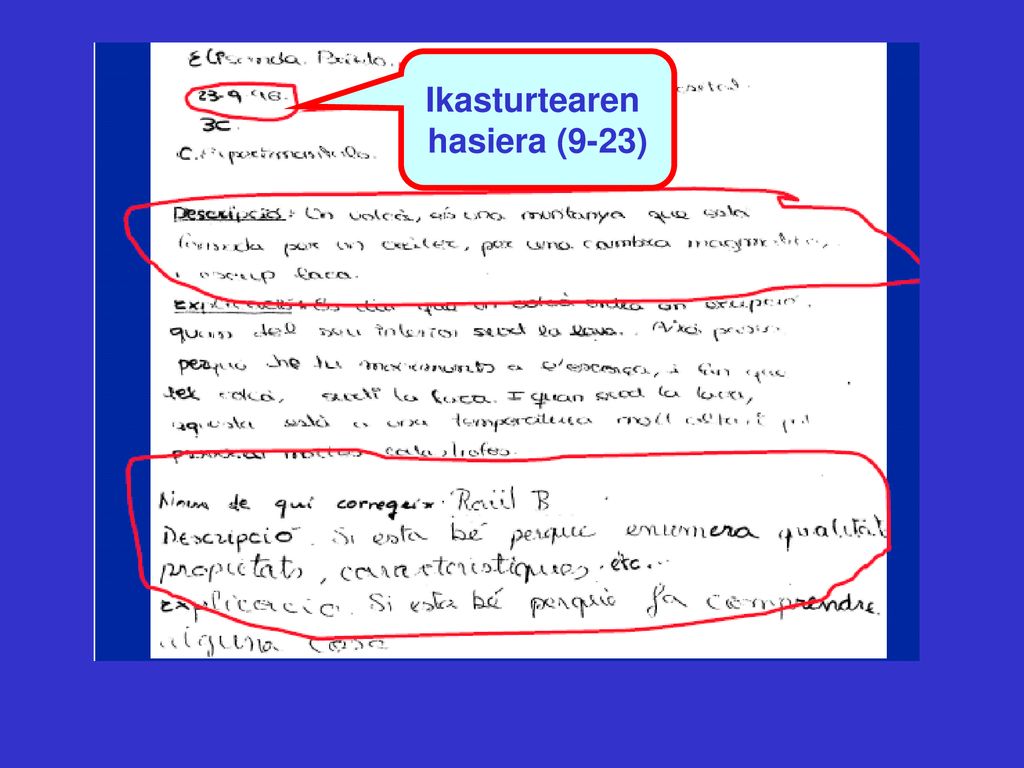 Ikasturtearen
hasiera (9-23)
23-9-96.
3C.
C. Experimentals.
Descripció: Un volcà, és una muntanya que està
formada per un cràter, per una cambra magmàtica,
i escup lava.
Explicació: Es diu que un volcà entra en erupció,
quan del seu interior surt la lava. Això passa
perquè hi ha moviments a l'escorça, i fan que
del volcà, surti la lava. I quan surt la lava,
aquesta està a una temperatura molt alta i pot
provocar moltes catastrofes.
Nom de qui corregeix: Raül B
Descripció. Si esta bé perquè enumera qualitats
propietats, característiques, etc.
Explicació. Si esta bé perquè fa comprendre
alguna cosa